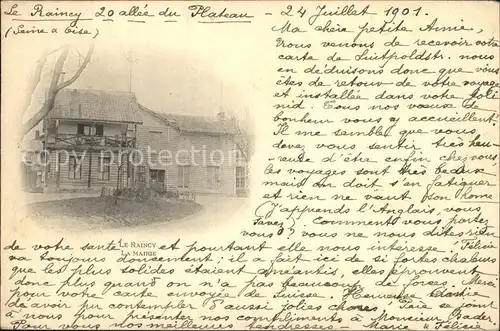 Le Raincy 20 allée du Plateau - 24 Juillet 1901.
(Seine & Oise)
Ma chère petite Amie,
Nous venons de recevoir votre
carte de Luitpoldstr. nous
en déduisons donc que vous
êtes de retour de votre voyage
et installée dans votre joli
nid. Tous nos vœux de
bonheur vous y accueillent
Il me semble que vous
devez vous sentir très heu-
reuse d'être enfin chez vous
les voyages sont très beaux
mais on doit s'en fatiguer
et rien ne vaut son home
J'apprends l'Anglais, vous
savez! Comment vous portez
vous? vous ne nous dites rien
de votre santé et pourtant elle nous intéresse.
va toujours doucement; il a fait ici de si fortes chaleurs
que les plus solides étaient anéantis, elle éprouvent
donc plus quand on n'a pas beaucoup de forces. Merci
pour votre carte envoyée de Suisse. Heureuse
de avoir pu contempler d'aussi jolies choses. Se joint
à nous pour présenter nos compliments à Monsieur Bader
Pour vous nos meilleures tendresses Marie
LE RAINCY
LA MAIRIE